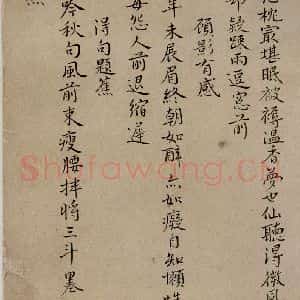 枕最堪眠被褥温香夢也仙聽得微風
疎雨逗窓前
顧影有感
年未展眉終朝如醉亦如癡自知懶性
每怨人前退縮遲
得句題蕉
吟秋句風前束瘦腰拌將三斗墨
蕉
Shufawang.cn